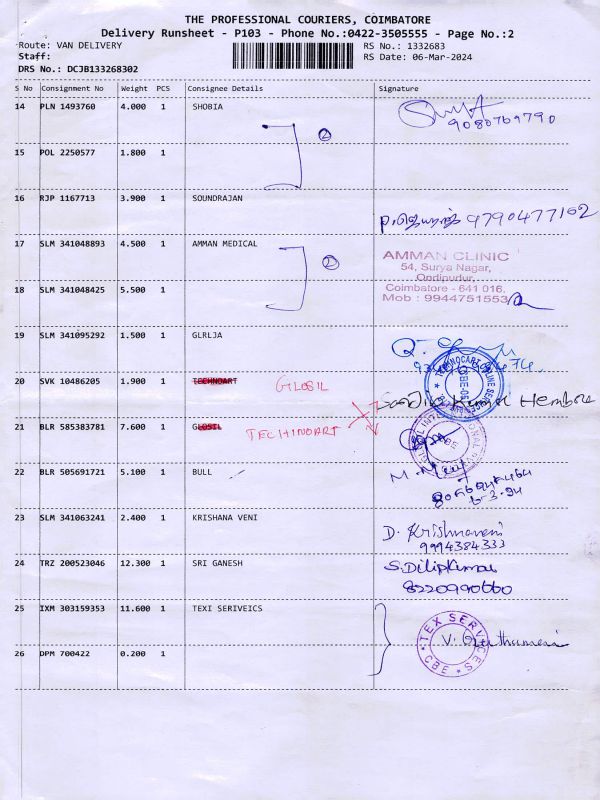 THE PROFESSIONAL COURIERS, COIMBATORE
Delivery Runsheet - P103 - Phone No.:0422-3505555 - Page No.:2
Route: VAN DELIVERY RS No.: 1332683
Staff: RS Date: 06-Mar-2024
DRS No.: DCJB133268302
S No Consignment No Weight PCS Consignee Details Signature
14 PLN 1493760 4.000 1 SHOBIA
9080769790
2
15 POL 2250577 1.800 1
16 RJP 1167713 3.900 1 SOUNDRAJAN
9790477162
17 SLM 341048893 4.500 1 AMMAN MEDICAL
2
AMMAN CLINIC
54, Surya Nagar,
Ondipudur,
18 SLM 341048425 5.500 1
Coimbatore - 641 016.
Mob : 9944751553
19 SLM 341095292 1.500 1 GLRLJA
20 SVK 10486205 1.900 1 TECHNOART GLOSIL
21 BLR 585383781 7.600 1 GLOSIL TECHINOART
22 BLR 505691721 5.100 1 BULL
6-3-24
23 SLM 341063241 2.400 1 KRISHANA VENI
D. Krishnaveni
9994384333
24 TRZ 200523046 12.300 1 SRI GANESH
S. Dilipkumar
8220990660
25 IXM 303159353 11.600 1 TEXI SERIVEICS
TEX SERVICES
CBE
26 DPM 700422 0.200 1